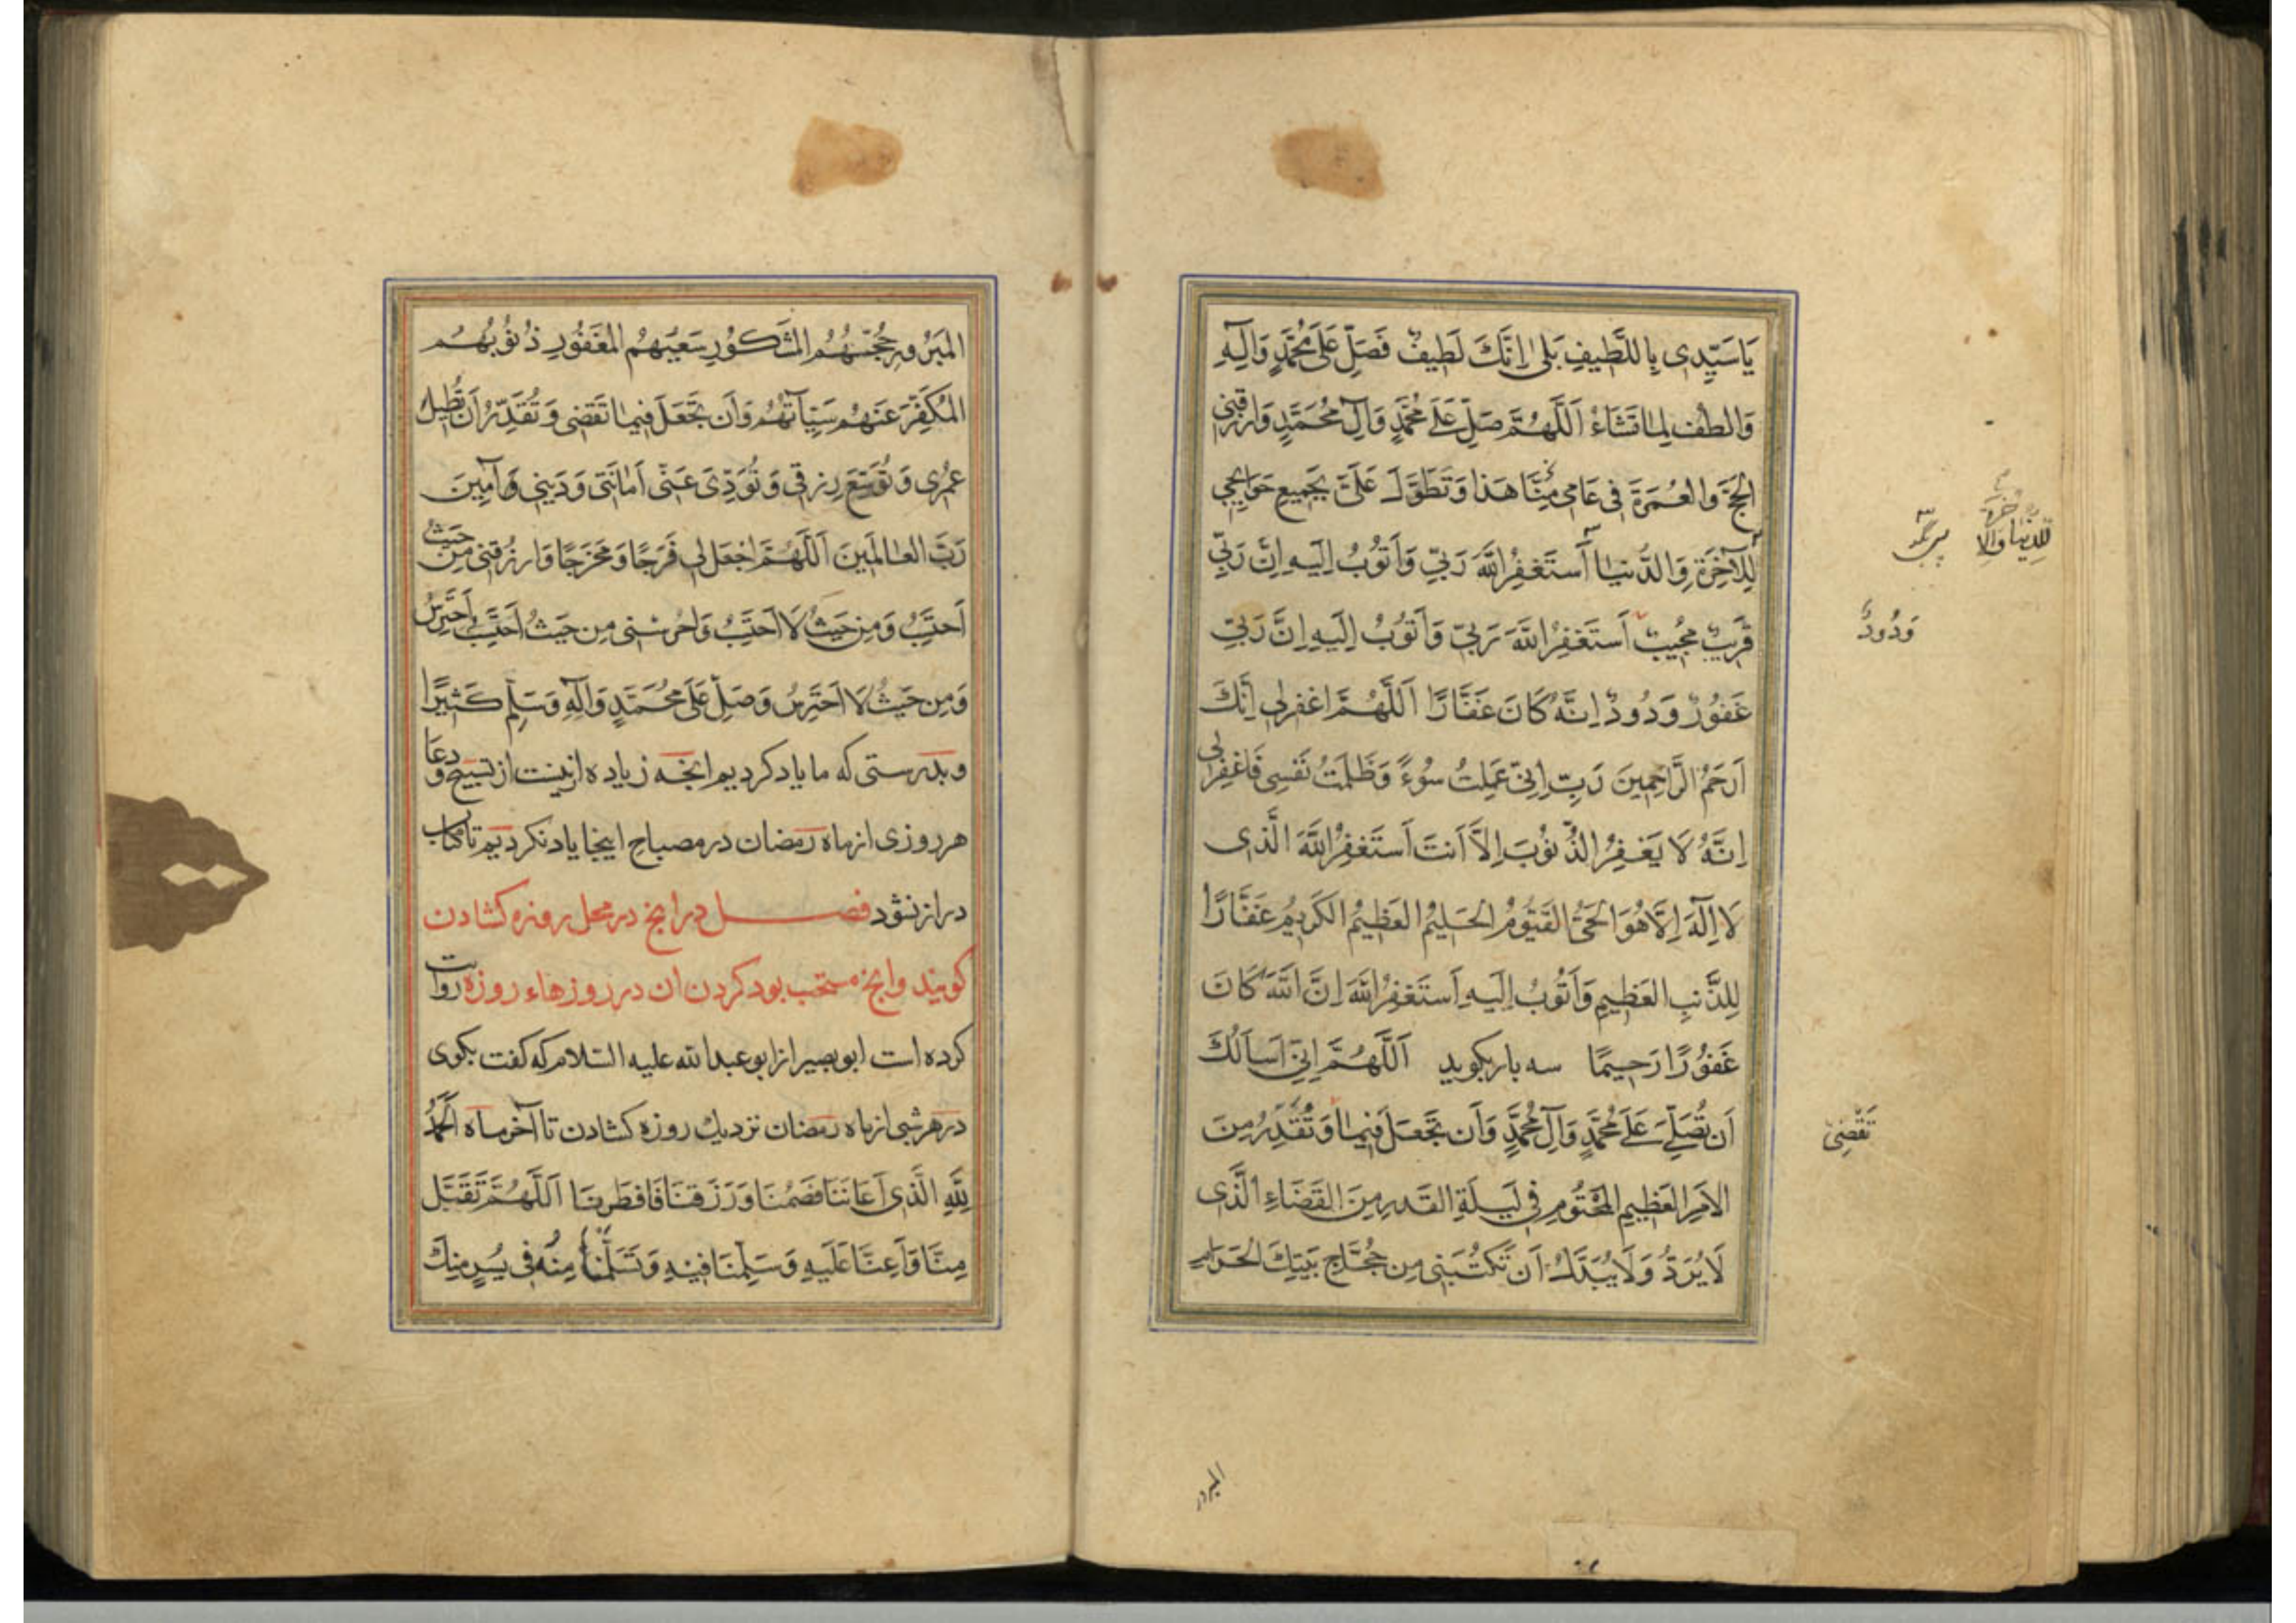 يَا سَيِّدِي بِاللَّطِيفِ بَلى اِنَّكَ لَطِيفٌ فَصَلِّ عَلى مُحَمَّدٍ وَآلِهِ
وَالطُف لِما تَشَاءُ اَللَّهُمَّ صَلِّ عَلى مُحَمَّدٍ وَآلِ مُحَمَّدٍ وَارزُقنِي
الحَجَّ وَالعُمرَةَ فِي عَامِي هَذا وَتَطَوَّل عَلَيَّ بِجَمِيعِ حَوَائِجِي
لِلآخِرَةِ وَالدُّنيا أَستَغفِرُ اللّهَ رَبِّي وَأَتُوبُ اِلَيهِ اِنَّ رَبِّي
لِلدُنيا وَالآخِرَةِ
قَرِيبٌ مُجِيبٌ اَستَغفِرُ اللّهَ رَبِّي وَاَتُوبُ اِلَيهِ اِنَّ رَبِّي
وَدُودٌ
غَفُورٌ وَدُودٌ اِنَّهُ كَانَ غَفَّارًا اَللَّهُمَّ اغفِر لِي اِنَّكَ
اَرحَمُ الرَّاحِمِينَ رَبِّ اِنِّي عَمِلتُ سُوءً وَظَلَمتُ نَفسِي فَاغفِر لِي
اِنَّهُ لَا يَغفِرُ الذُّنُوبَ اِلاَّ اَنتَ اَستَغفِرُ اللّهَ الَّذِى
لَا اِلَهَ اِلَّا هُوَ الحَيُّ القَيُّومُ الحَلِيمُ العَظِيمُ الكَرِيمُ غَفَّارًا
لِلذَّنبِ العَظِيمِ وَاَتُوبُ اِلَيهِ اَستَغفِرُ اللّهَ اِنَّ اللّهَ كَانَ
غَفُورًا رَحِيمًا سه بار بكويد اَللَّهُمَّ اِنِّي اَسأَلُكَ
اَن تُصَلِّيَ عَلَى مُحَمَّدٍ وَآلِ مُحَمَّدٍ وَاَن تَجعَلَ فِيمَا وَتُقَدِّرُ مِنَ
تَقضِى
الاَمرِ العَظِيمِ المَحتُومِ فِي لَيلَةِ القَدرِ مِنَ القَضَاءِ الَّذِى
لَا يُرَدُّ وَلَا يُبَدَّلُ اَن تَكتُبَنِي مِن حُجَّاجِ بَيتِكَ الحَرَامِ
المبرور
المَبرُورِ حَجُّهُمُ المَشكُورِ سَعيُهُمُ المَغفُورِ ذُنُوبُهُم
المُكَفَّرِ عَنهُم سَيِّآتُهُم وَاَن تَجعَلَ فِيمَا تَقضِى وَتُقَدِّرُ اَن تُطِيلَ
عُمُرِى وَتُوَسِّعَ رِزقِي وَتُؤَدِّىَ عَنِّى اَمَانَتِى وَدَينِي آمِينَ
رَبَّ العَالَمِينَ اَللّهُمَّ اجعَل لِي فَرَجًا وَمَخرَجًا وَارزُقنِي مِن حَيثُ
اَحتَسِبُ وَمِن حَيثُ لَا اَحتَسِبُ وَاحرُسنِى مِن حَيثُ اَحتَرِسُ
وَمِن حَيثُ لَا اَحتَرِسُ وَصَلِّ عَلَى مُحَمَّدٍ وَآلِهِ وَسَلِّم كَثِيرًا
وبدرستى كه ما ياد كرديم انچه زياده ازينست از تسبيح و دعا
هر روزى از ماه رمضان در مصباح اينجا ياد نكرديم تا كتاب
دراز نشود فصل در انچ در محل روزه كشادن
كويند وانچ مستحب بود كردن ان در روزهاء روزه روايت
كرده است ابو بصير از ابو عبد الله عليه السّلام كه كفت بكوى
در هر شبى از ماه رمضان نزديك روزه كشادن تا آخر ماه اَلحَمدُ
لِلّهِ الَّذِى اَعَانَنَا فَصُمنَا وَرَزَقَنَا فَافطَرنَا اَللّهُمَّ تَقَبَّل
مِنَّا وَاَعِنَّا عَلَيهِ وَسَلِّمنَا فِيهِ وَتَسَلَّمنَا مِنهُ فِى يُسرٍ مِنكَ